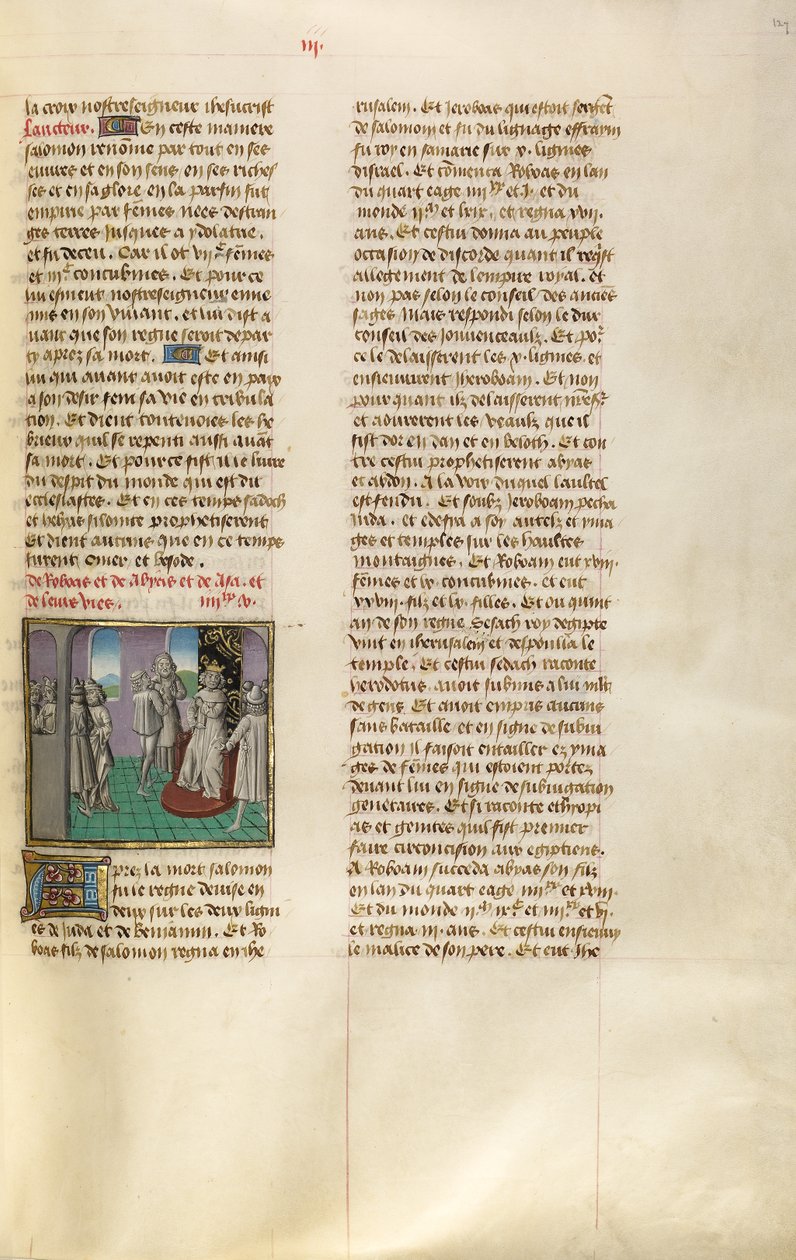 iii.
127
la croix nostreseigneur ihesucrist
Lacteur. En ceste maniere
salomon renōme par tout en ses
euures et en son sens, en ses riches
ses et en sa glore en la parfin fut
empirie par fēmes nees destran
ges terres Jusques a ydolatrie,
et fu deceu. Car il ot vii.c fēmes
et iii.c concubines. Et pour ce
lui esmeut nostreseigneur enne
mis en son viuant. et lui dist a
uant que son regne seroit depar
ty aprez sa mort. Et ainsi
lui qui auant auoit este en paix
a son desir feni sa vie en tribula
tion. Et dient touteuoies les he
brieux quil se repenti aussi auāt
sa mort. Et pource fist il le liure
du despit du monde qui est dit
ecclesiastes. Et en ces temps sadoch
et helyas silonite prophetiserent
Et dient aucuns que en ce temps
furent Omer et hesiode.
de Roboas et de Abyas et de Asa. et
de leurs vies. iiii.xx v.
Aprez la mort salomon
fu le regne deuise en
deux sur les deux lign
es de Juda et de Beniamin. Et Ro
boas filz de salomon regna en ihe
rusalem. Et Jeroboas qui estoit sergēt
de salomon et fu du lignage effraym
fu roy en samarie sur x. lignies
disrael. Et cōmenca Roboas en lan
du quart eage iiii.xx et i. et du
monde ii.m et lxix, et regna xvii.
ans. Et cestui donna au peuple
occasion de discorde quant il reqist
allegement de lempire royal. et
non pas selon le conseil des anciēs
sages Mais respondi selon le dur
conseil des Jouuenceaulx. Et por
ce le delaisserent les x. lignies, et
ensieuuirent Jheroboam. Et non
pour quant ilz delaisserent nr̄esr
et aourerent les veaulx que il
fist dor en dan et en beloth. Et con
tre cestui prophetiserent abyas
et abdon. A la voix duquel laultel
est fendu. Et soubz Jeroboam pecha
iuda. et edefia a soy autelz et yma
ges et temples sur les haultes
montaignes. Et Roboam eut xviii.
fēmes et lx. concubines. et eut
xxviii. filz et lx. filles. Et ou quint
an de son regne Sesach roy degipte
vint en iherusalem et despoulla le
temple. Et cestui sedach raconte
herodotus auoit submis a lui mlt
de gens. Et auoit empris aucuns
sans bataille et en signe de subiu
gation il faisoit entailler ez yma
ges de fēmes qui estoient portez
deuant lui en signe de subiugation
genitaires. Et si raconte ethyopi
as et gentes quil fist premier
faire circoncision aux egiptiens.
A Roboam succeda abyas son filz
en lan du quart eage iiii.xx et xviii.
Et du monde ii.m ix.c et iiii.xx et vi.
et regna iii. ans. Et cestui ensieuuy
le malice de son pere. Et eut Jhe